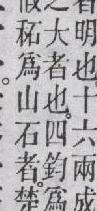 者明也十六兩成
之大者也。四鈞爲
䄷爲山石者。楚